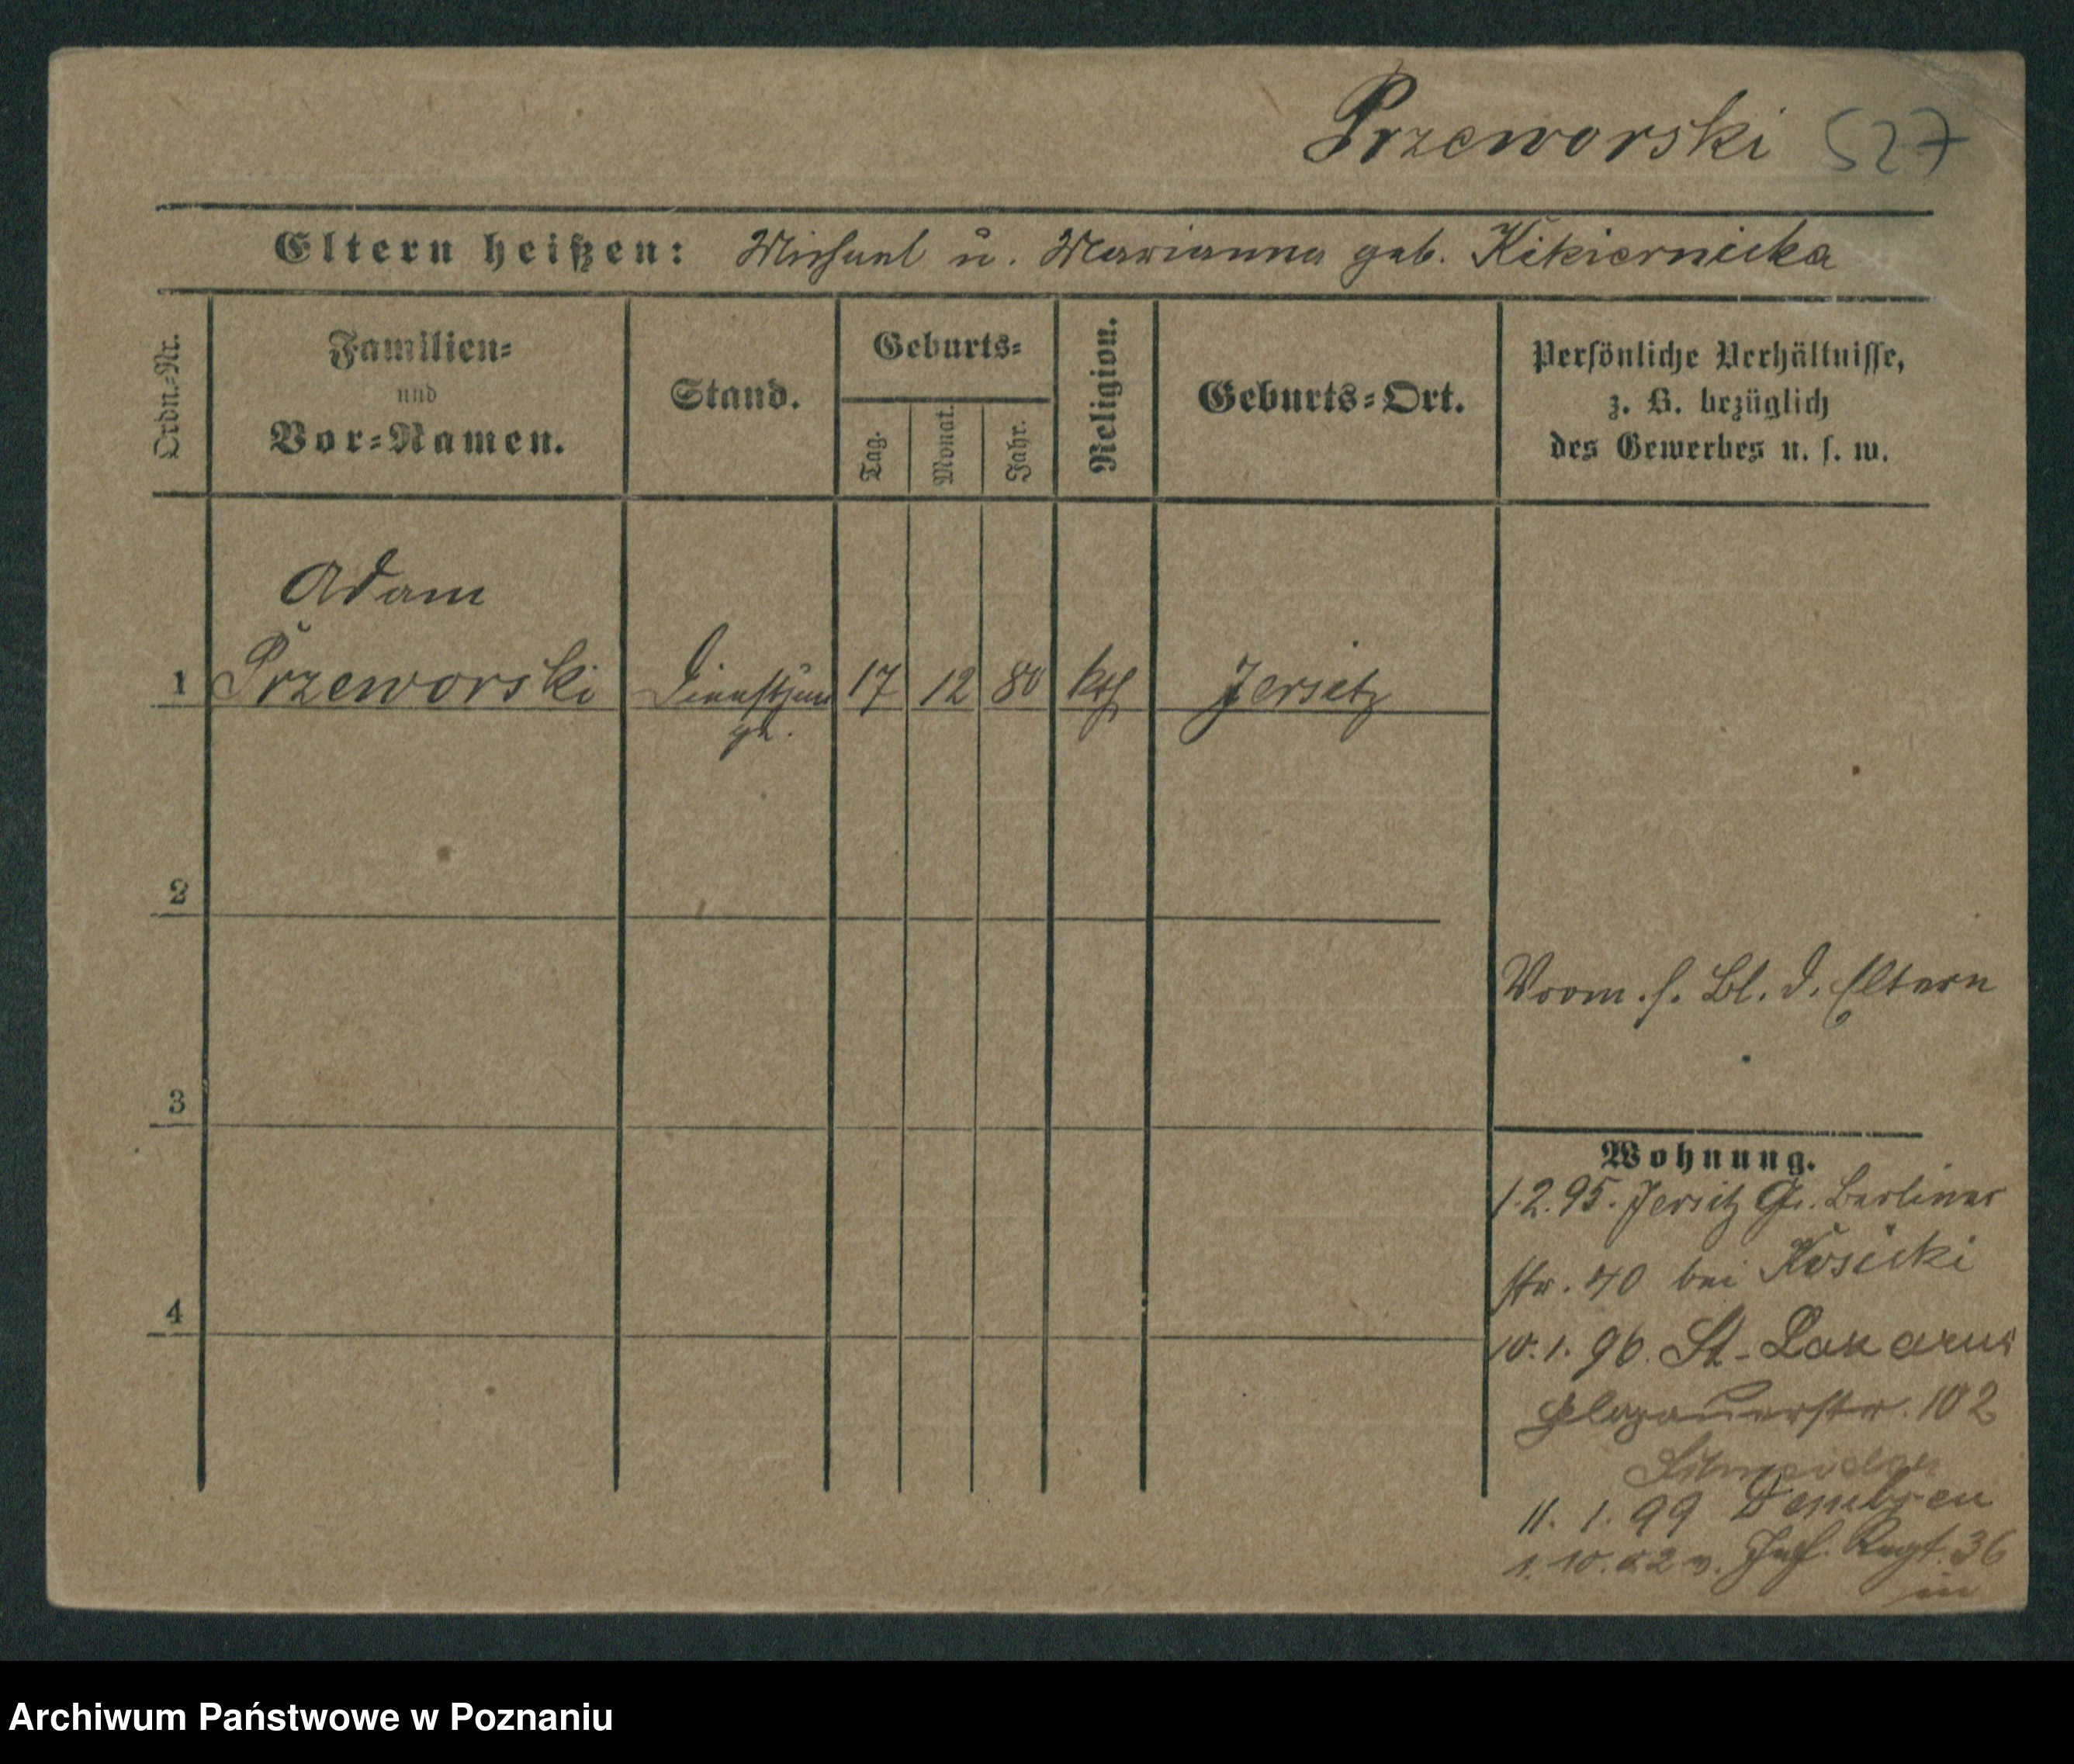 Przeworski 527
Eltern heißen: Michael u. Marianna geb. Kikiernicka
Ordn.-Nr.
Familien-
und
Vor-Namen.
Stand.
Geburts-
Tag.
Monat.
Jahr.
Religion.
Geburts-Ort.
Persönliche Verhältnisse,
z. B. bezüglich
des Gewerbes u. s. w.
Adam
1 Przeworski Dienstjun 17 12 80 kth Jersitz
ge.
2
Vrom. s. Bl. d. Eltern
3
Wohnung.
1.2.95. Jersitz Gr. Berliner
str. 40 bei Kosicki
4
10.1.96. St. Lazarus
Glogauerstr. 102
11. 1. 99 Dembsen
1. 10. 02 v. Inf. Regt. 36
in
Archiwum Państwowe w Poznaniu